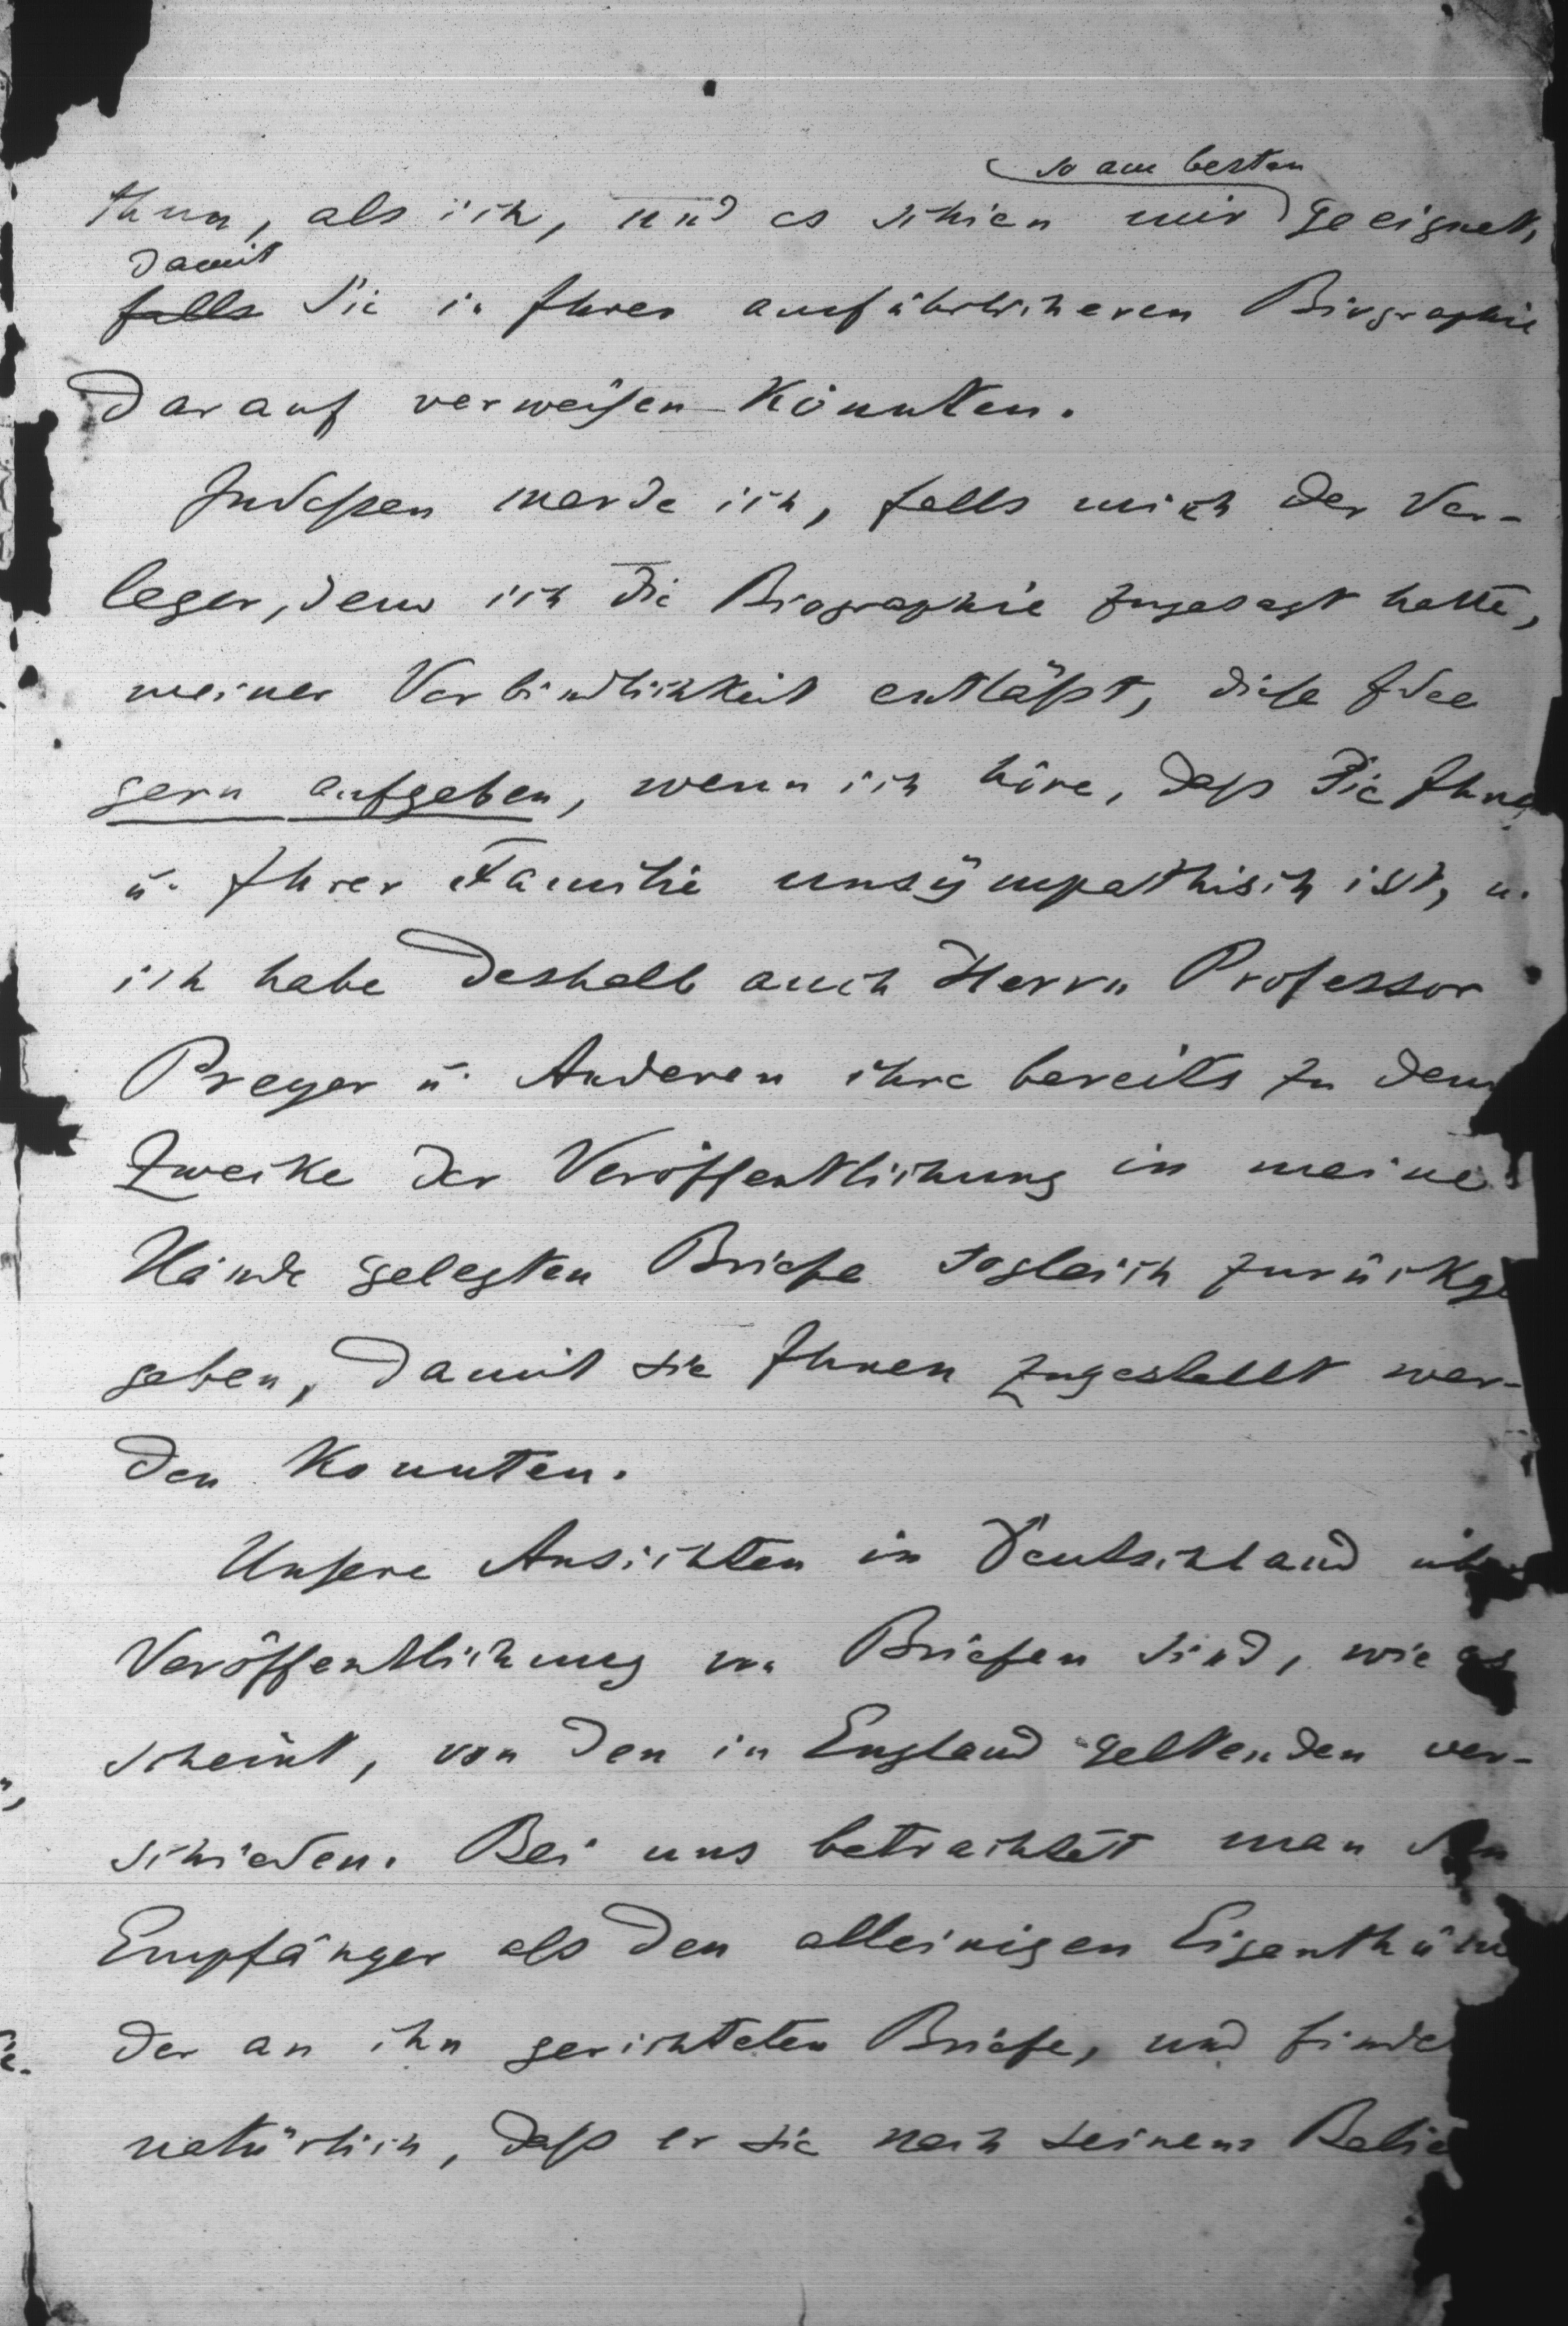 so am besten
thun, als ich, und es schien mir geeignet,
damit
falls Sie in Ihrer ausführlicheren Biographie
darauf verweisen könnten.
Indessen werde ich, falls mich der Ver-
leger, dem ich die Biographie zugesagt hatte,
meiner Verbindlichkeit entläßt, diese Idee
gern aufgeben, wenn ich höre, daß sie Ihnen
u. Ihrer Familie unsympathisch ist, u.
ich habe deshalb auch Herrn Professor
Preyer u. Anderen ihre bereits zu dem
Zwecke der Veröffentlichung in meine
Hände gelegten Briefe sogleich zurückge
geben, damit sie Ihnen zugestellt wer-
den konnten.
Unsere Ansichten in Deutschland
Veröffentlichung von Briefen sind, wie es
scheint, von den in England geltenden ver-
schieden. Bei uns betrachtet man den
Empfänger als den alleinigen Eigenthüm
der an ihn gerichteten Briefe, und finde
natürlich, daß er sie nach seinem Belie